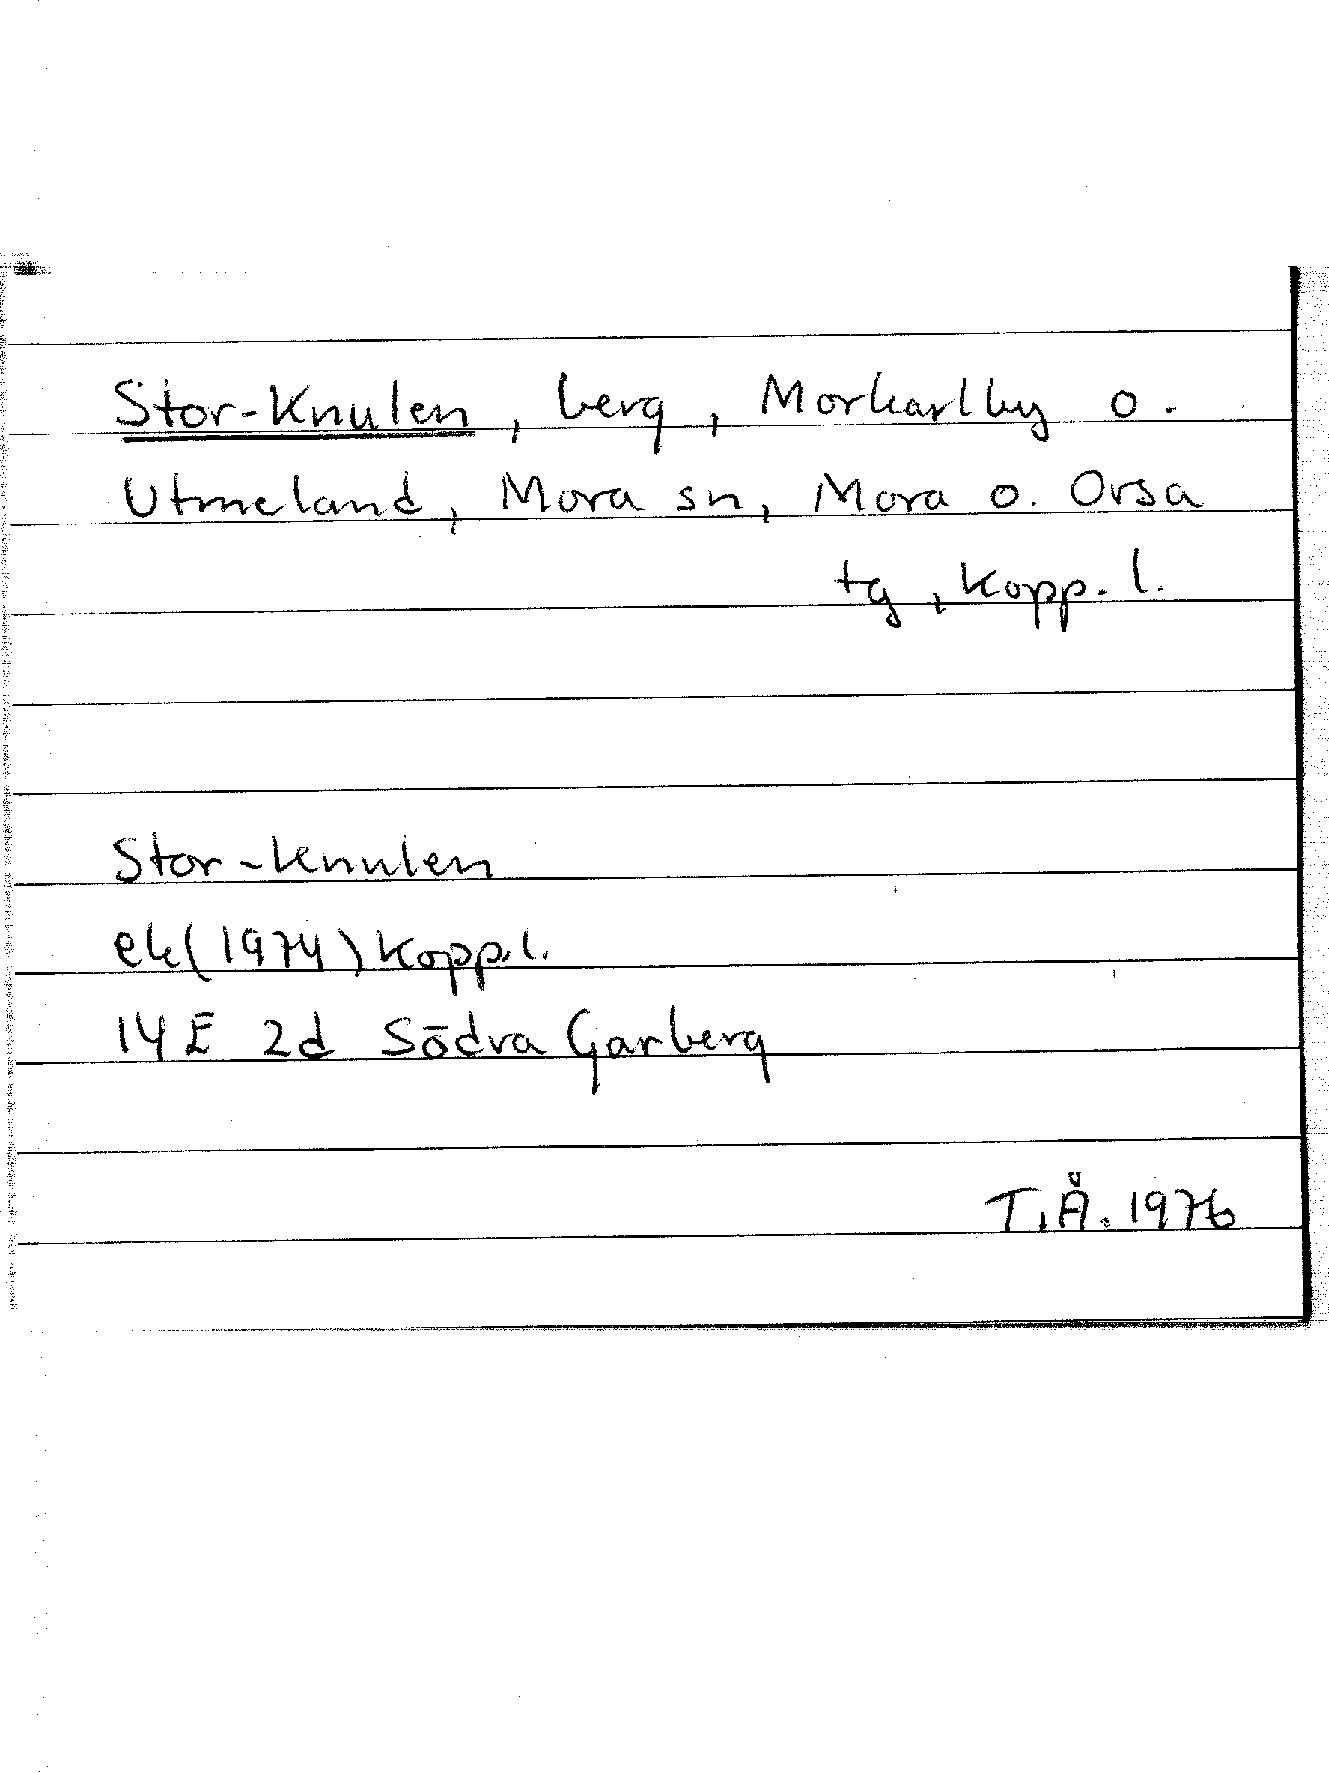 Stor-Knulen, berg, Morkarlby o.
Utmeland, Mora sn, Mora o. Orsa
tg, Kopp. l.
Stor-Knulen
ek(1974) Kopp.l.
14E 2d Södra Garberg
T.Å. 1976